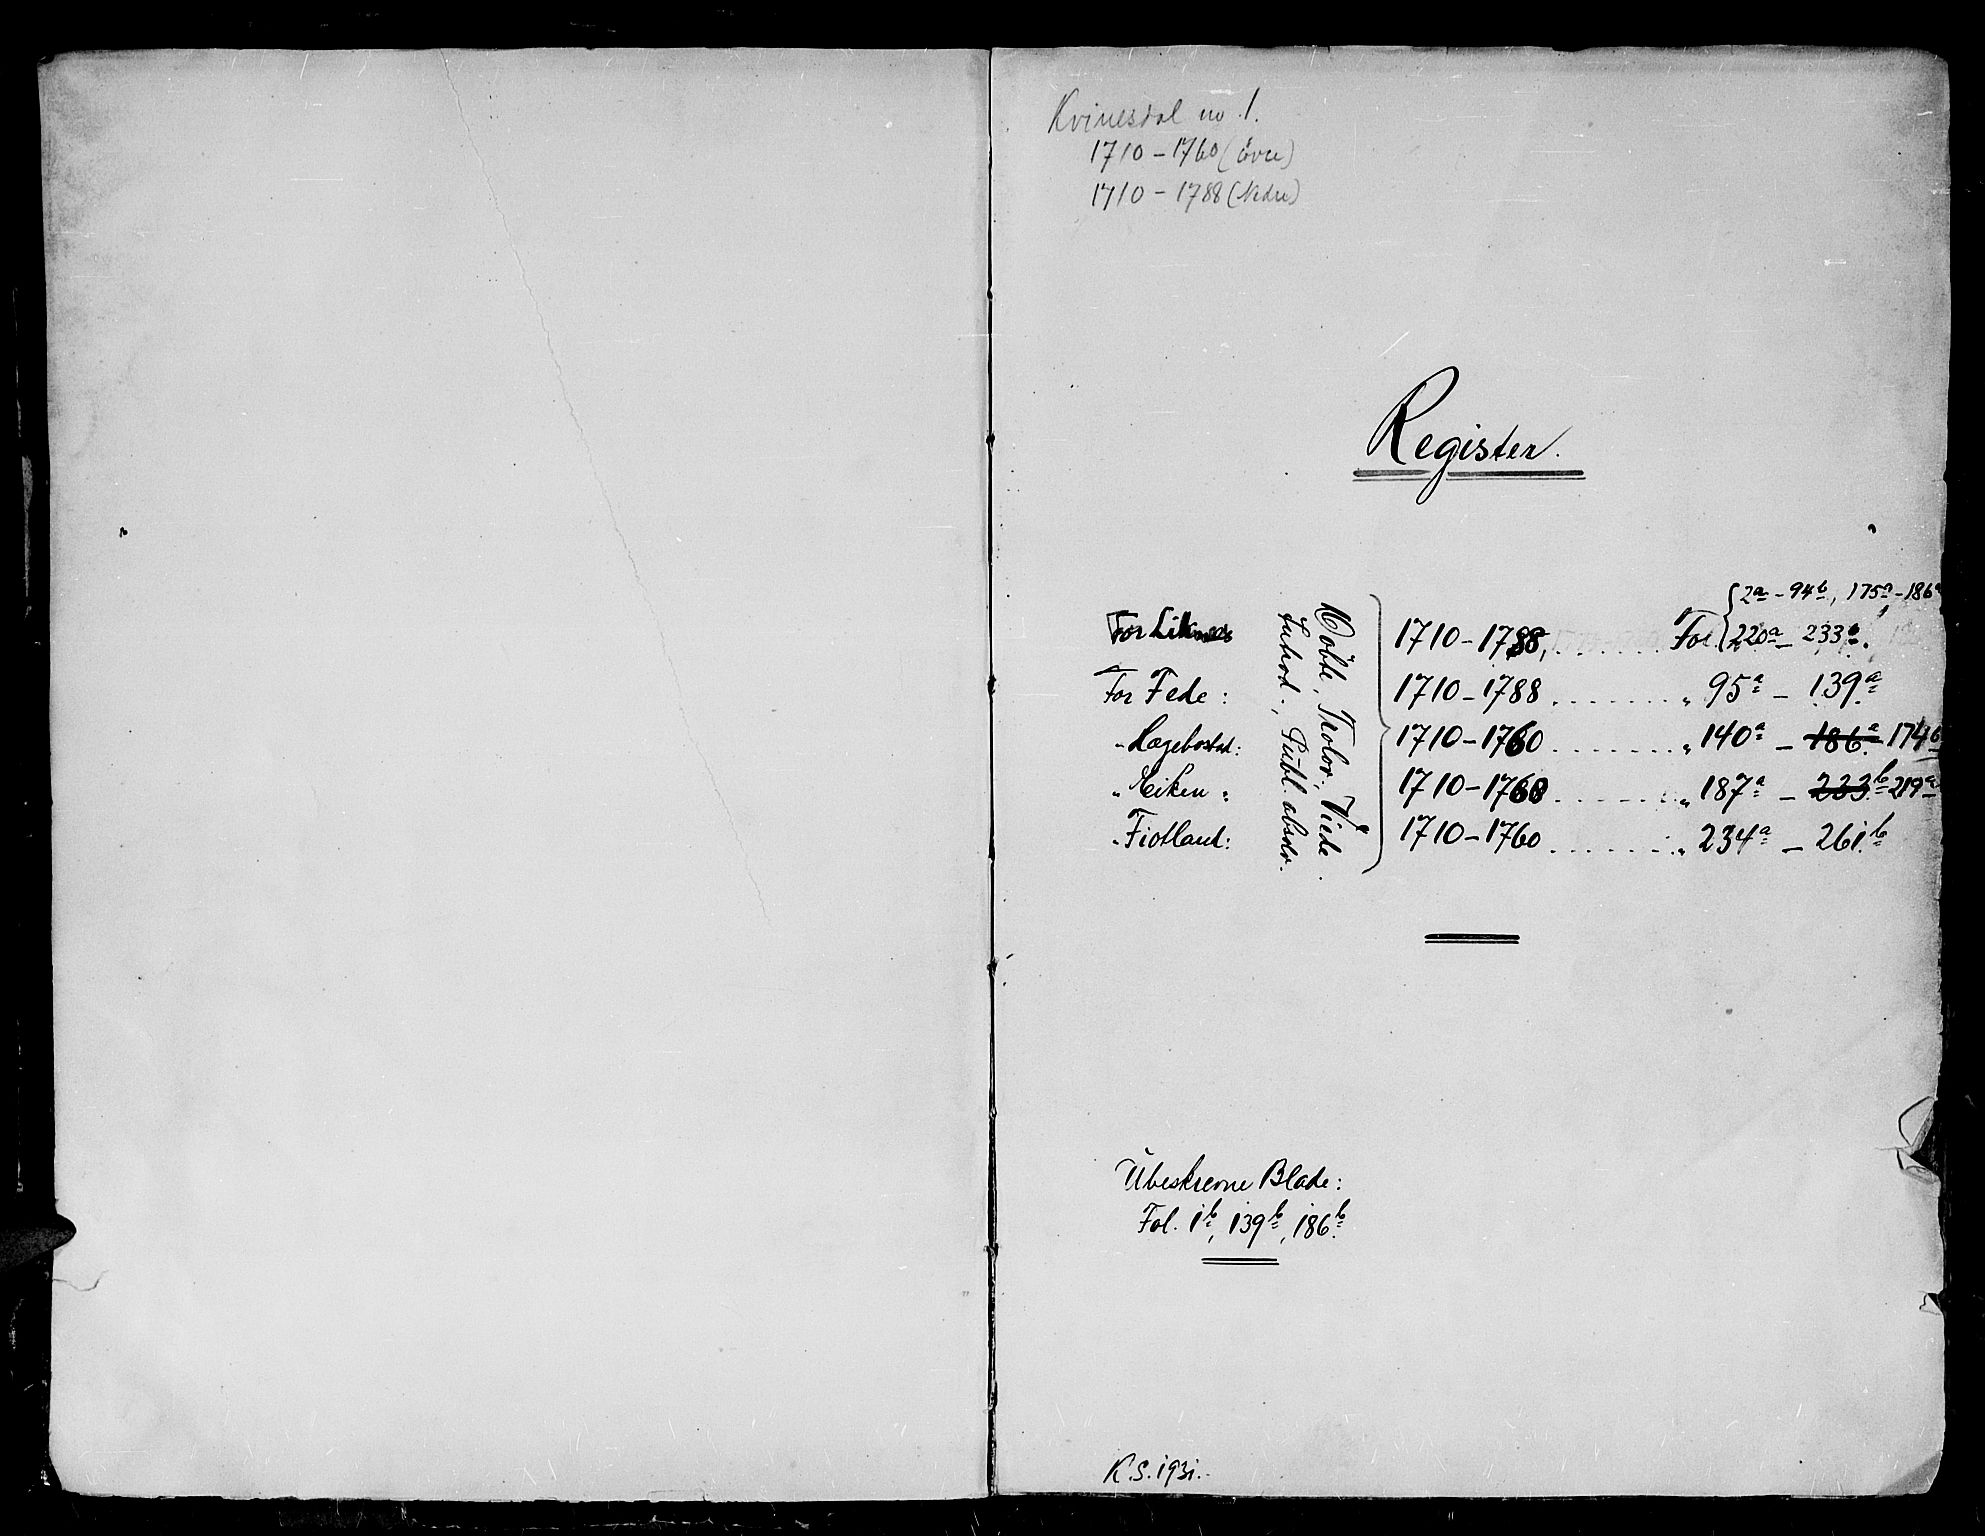 Kvinesdal no 1.
1710-1760 (övre)
1710-1788 (Nedre)
Register.
For Liknes 1710-1788, . . . . . . . Fol. {2a - 94b, 175a - 186a
220a - 233b.
For Fede: 1710-1788 . . . . . . . " 95a - 139a
" Hægebostad: 1710-1760 . . . . . . . " 140a - 186a 174b
" Eiken: 1710-1760 . . . . . . . " 187a - 233b 219a
" Fiotland: 1710-1760 . . . . . . . " 234a - 261b
Döbte, Trolov., Viede.
Introd., Publ. absolv.
Ubeskrevne Blade:
Fol. 1b, 139b, 186b.
K.S. 1931.